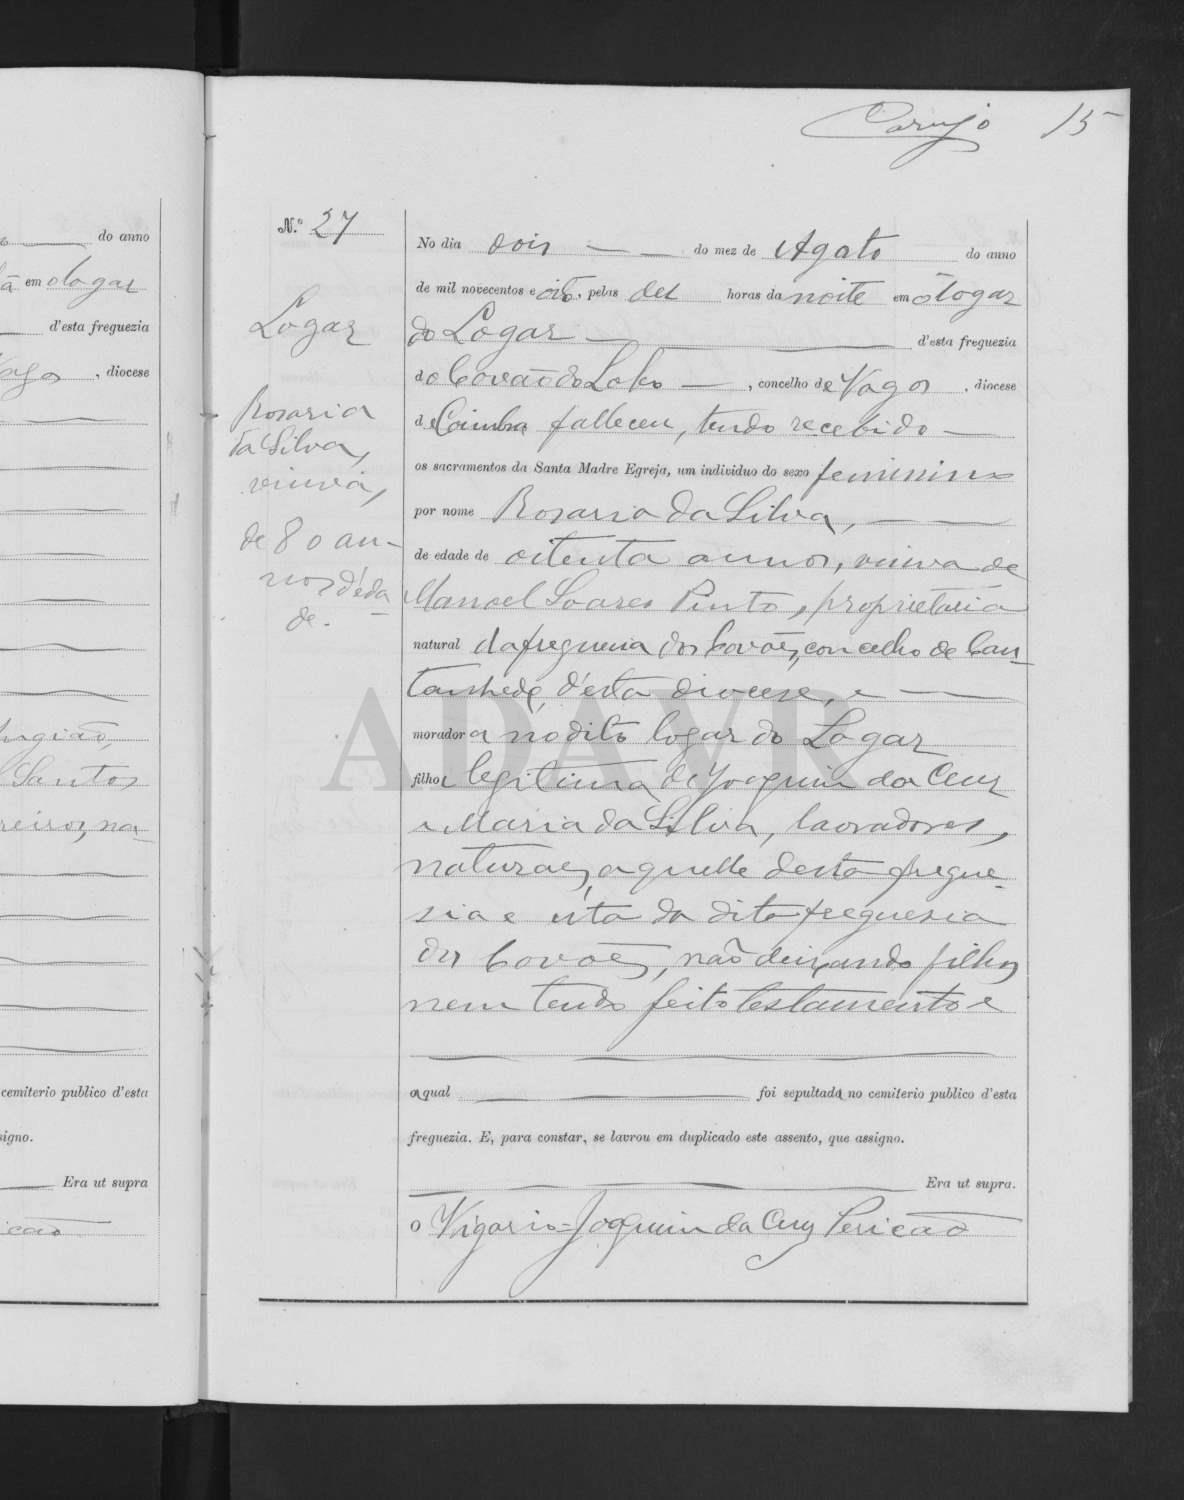 Carujo 15
do anno
ã em o logar
d'esta freguezia
Vagos, diocese
Santos
reiros, na-
cemiterio publico d'esta
signo.
Era ut supra
icão
N.º 27
Logar
Rosaria
da Silva,
viuva,
de 80 an-
nos d'eda
de.
No dia dois do mez de Agosto do anno
de mil novecentos e oito, pelas dez horas da noite em o logar
do Logar d'esta freguezia
do Covão do Lobo, concelho de Vagos, diocese
de Coimbra falleceu, tendo recebido
os sacramentos da Santa Madre Egreja, um individuo do sexo feminino
por nome Rosaria da Silva,
de edade de oitenta annos, viuva de
Manoel Soares Pinto, proprietaria
natural da freguesia dos Covões, concelho de Can-
tanhede, d'esta diocese, e
moradora no dito logar do Logar
filha legitima de Joaquim da Cruz
e Maria da Silva, lavradores,
naturaes, aquelle desta fregue-
sia e esta da dita freguesia
dos Covões, não deixando filhos
nem tendo feito testamento e
a qual foi sepultada no cemiterio publico d'esta
freguezia. E, para constar, se lavrou em duplicado este assento, que assigno.
Era ut supra.
O Vigario = Joaquim da Cruz Pericão
ADAVR